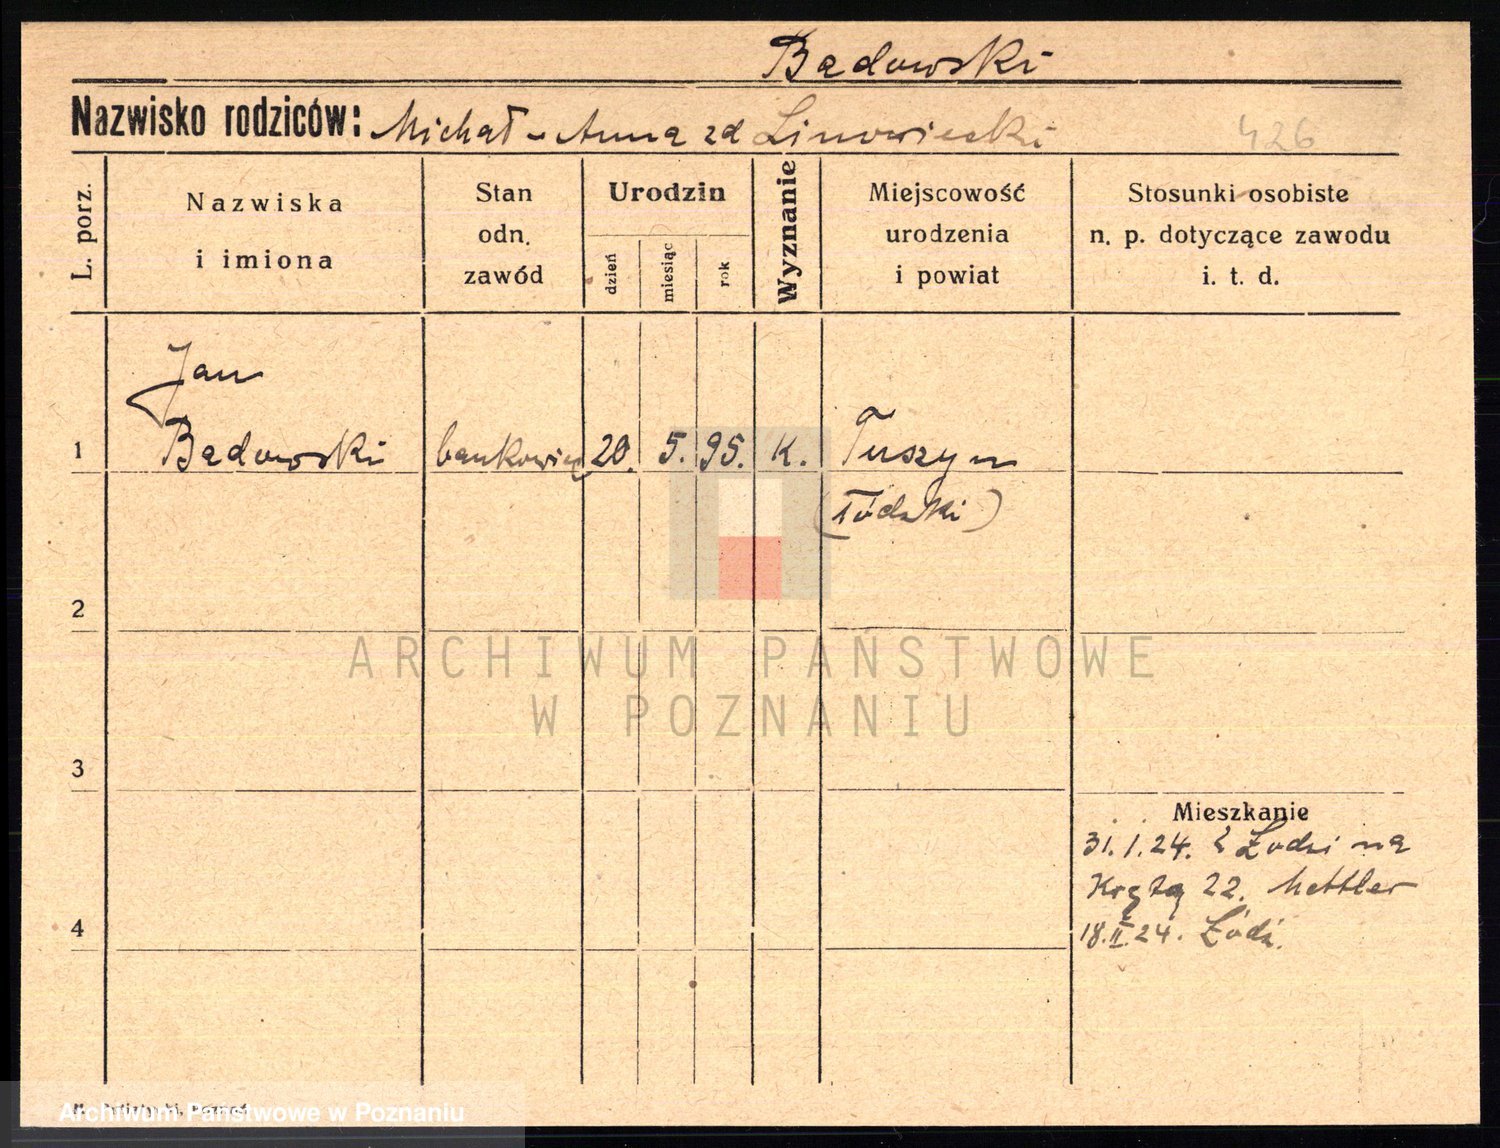 Bądowski
Nazwisko rodziców: Michał - Anna zd
426
L. porz.
Nazwiska
i imiona
Stan
odn.
zawód
Urodzin
dzień
miesiąc
rok
Wyznanie
Miejscowość
urodzenia
i powiat
Stosunki osobiste
n. p. dotyczące zawodu
i. t. d.
Jan
1 Bądowski bankowiec 20. 5. 95. K. Tuszyn
(łódzki)
2
3
4
Mieszkanie
31.1.24. z Łodzi na
22. Mettler
18.II.24. Łódź.
ARCHIWUM PAŃSTWOWE
W POZNANIU
Archiwum Państwowe w Poznaniu